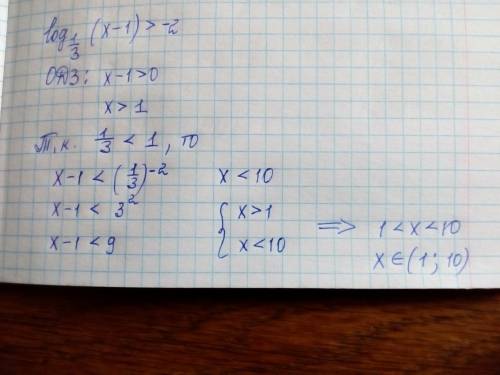 log_{1/3} (x-1) > -2
ОДЗ: x-1>0
x>1
Т.к. 1/3 < 1, то
x-1 < (1/3)^{-2}
x-1 < 3^2
x-1 < 9
x < 10
{ x>1
x<10
=> 1<x<10
x∈(1; 10)